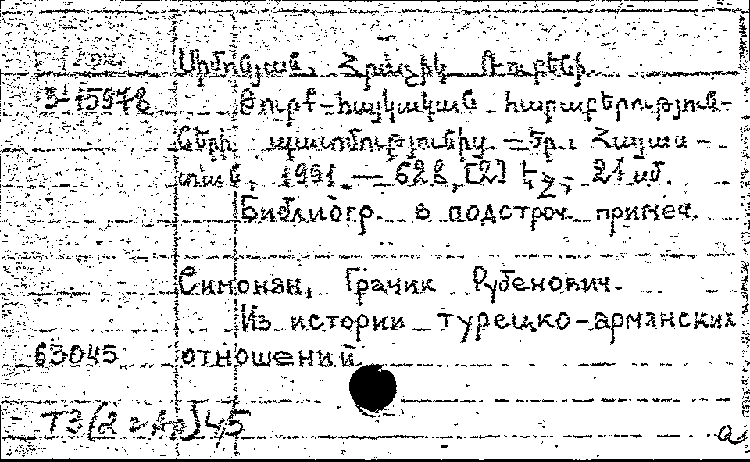 Սիմոնյան, Հրաչիկ Ռուբենի.
3-15978 Թուրք-հայկական հարաբերություն-
ների պատմությունից. — Եր.: Հայաս-
տան, 1991. — 628, [2] էջ; 21 սմ.
Библиогр. в подстроч. примеч.
Симонян, Грачик Рубенович.
Из истории турецко-армянских
63045 отношений.
Т3(2=Ар)4/5
a